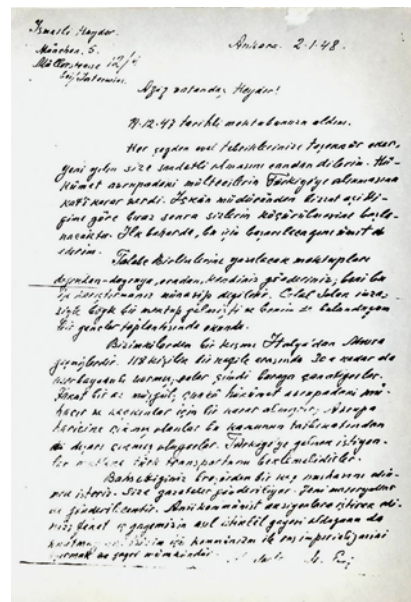 Ismaili Haydar.
München. 5.
Müllerstrasse 12/4
Ankara. 2.1.48.
Aziz vatandaş Haydar!
19.12.47 tarihli mektubunuzu aldım.
Her şeyden evvel tebriklerinize teşekkür eder,
yeni yılın size saadetli olmasını candan dilerim. Hü-
kümet avrupadaki mültecilerin Türkiyeye alınmasına
kat'i karar verdi. İskân müdüründen bizzat işitti-
ğime göre biraz sonra sizlerin köçürülmesine başla-
nacaktır. İlk baharda, bu işin başarılacağını ümit e-
derim.
Talebe Birliklerine yazılacak mektupları
doğrudan-doğruya, oradan, kendiniz gönderiniz, beni bu
işe karıştırmanız münasip değildir. Celal
böyle bir mektup gelmişti ve benim de bulunduğum
bir gençler toplantısında okundu.
Bizimkilerden bir kısmı İtalya'dan Mısıra
geçmişlerdir. 118 kişilik bir kafile arasında 30 a kadar da
azerbaycanlı varmış, onlar şimdi buraya can atıyorlar.
Fakat bir az müşgül, çünkü hükümet avrupadaki mü-
hacir ve kaçkınlar için bir karar almıştır, Avrupa
haricine çıkmış olanlar bu kanunun tatbikatından
dışarı çıkmış oluyorlar. Türkiye'ye gelmek istiyen-
ler mutlaka türk transportunu beklemelidirler.
Bahsettiğiniz broşürden bir kaç nushasını
isteriz. Size gazeteler gönderiliyor. Yeni
gönderilecektir. Antikommünist aksiyonlara iştirak edi-
niz, fakat iç gayemizin asıl istiklâl gayesi olduğunu da
unutmayınız, bizim için kommünizm ile rus imperializmini
ayırmak gayri mümkündür.